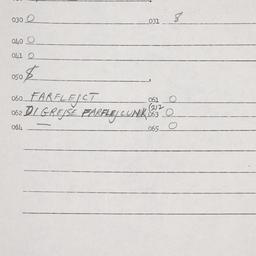 030 O 031 8
040 O
041 O
050 $
060 FARFLEJCT 061 O
062 DIGREJSE FARFLEJCUNK (212 063 O
064 — 065 O